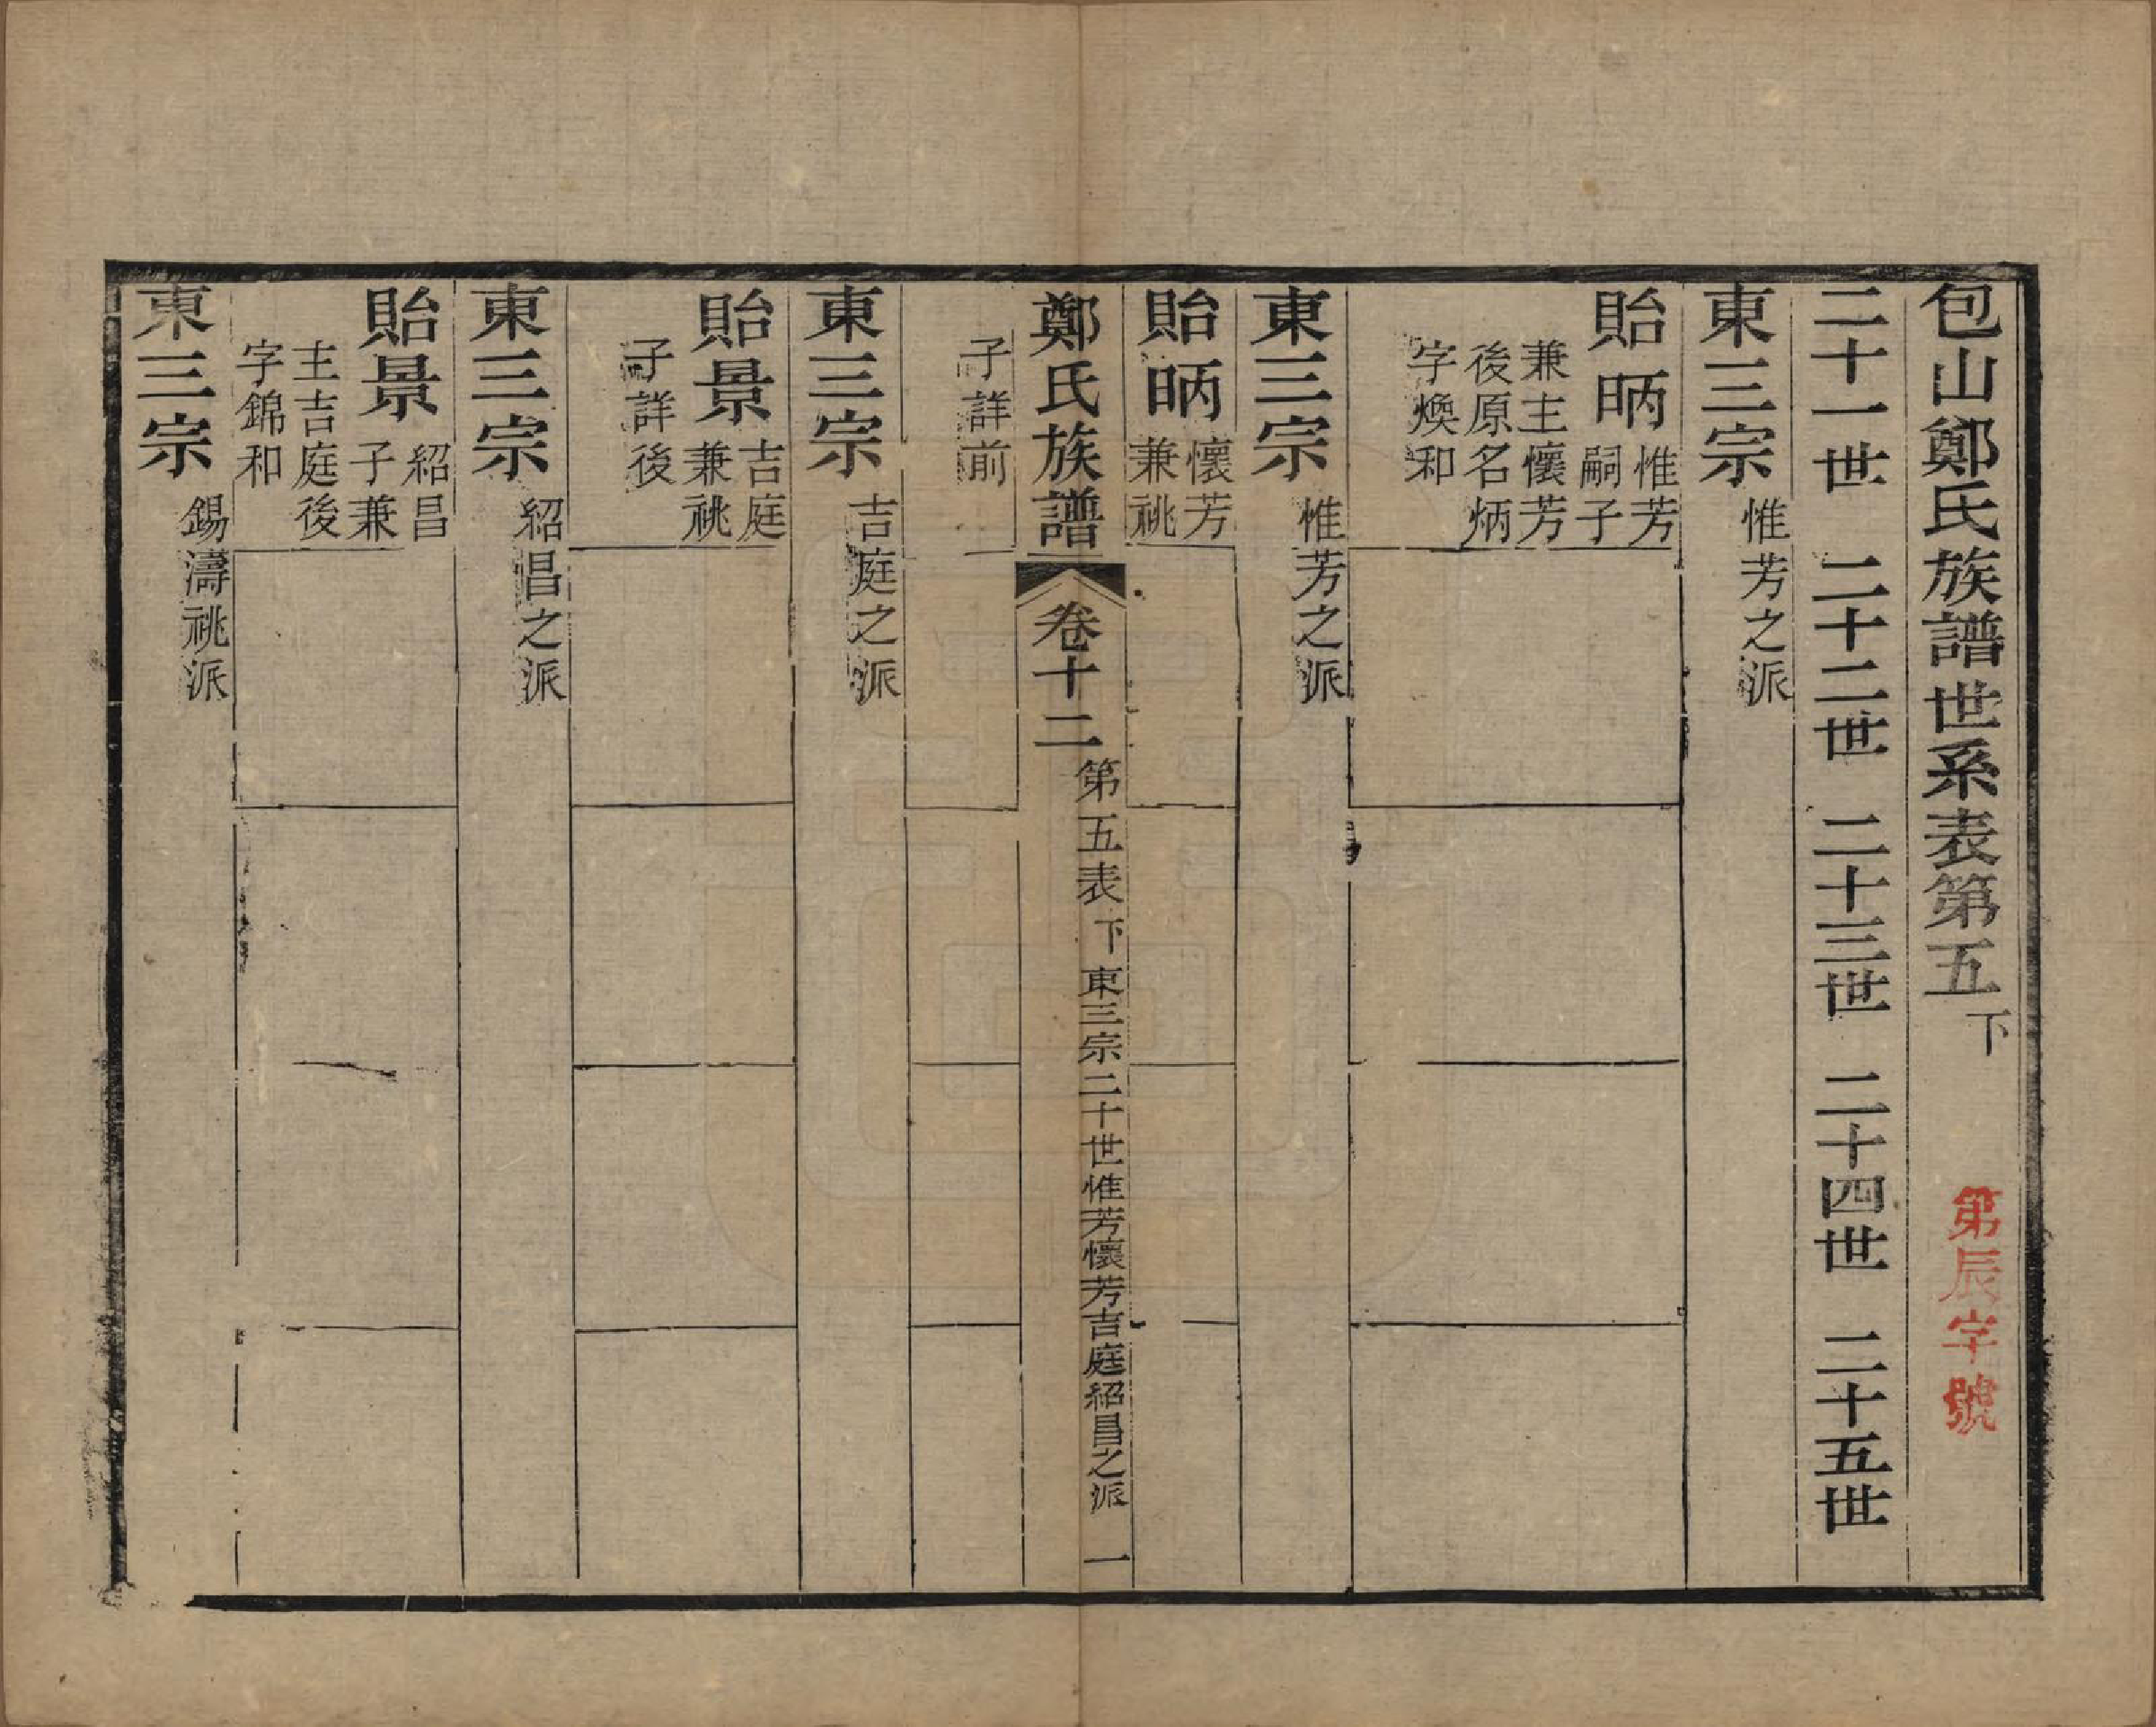 包山鄭氏族譜世系表第五下
第辰字號
二十一世 二十二世 二十三世 二十四世 二十五世
東三宗 惟芳之派
貽昞 惟芳
嗣子
兼主懷芳
後原名炳
字煥和
東三宗 惟芳之派
貽昞 懷芳
兼祧
鄭氏族譜 卷十二 第五表下 東三宗二十世惟芳懷芳吉庭紹昌之派 一
子詳前
東三宗 吉庭之派
貽景 吉庭
兼祧
子詳後
東三宗 紹昌之派
貽景 紹昌
子兼
主吉庭後
字錦和
東三宗 錫濤祧派